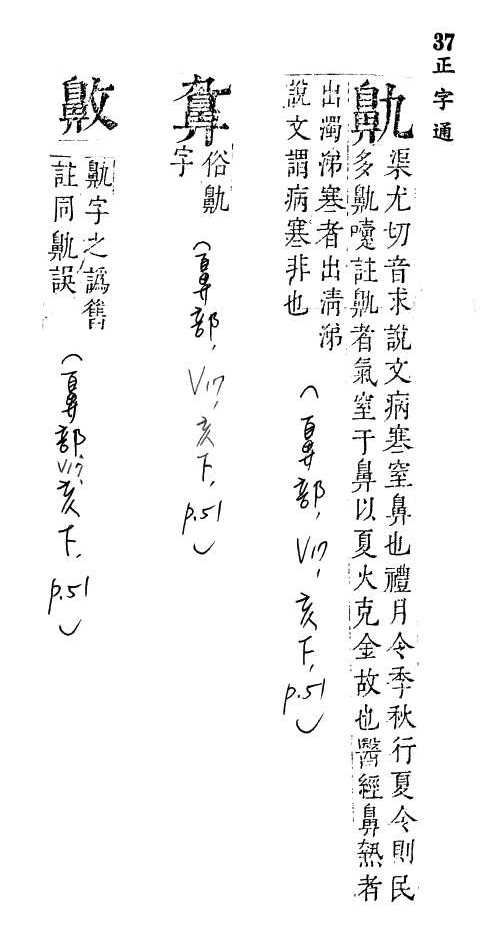 37正字通
鼽
渠尤切音求說文病寒窒鼻也禮月令季秋行夏令則民
多鼽嚏註鼽者氣窒于鼻以夏火克金故也醫經鼻熱者
出濁涕寒者出清涕
說文謂病寒非也
(鼻部, V17, 亥下, p.51)
俗鼽
字
(鼻部, V17, 亥下, p.51)
鼽字之譌舊
註同鼽誤
(鼻部, V17, 亥下, p.51)